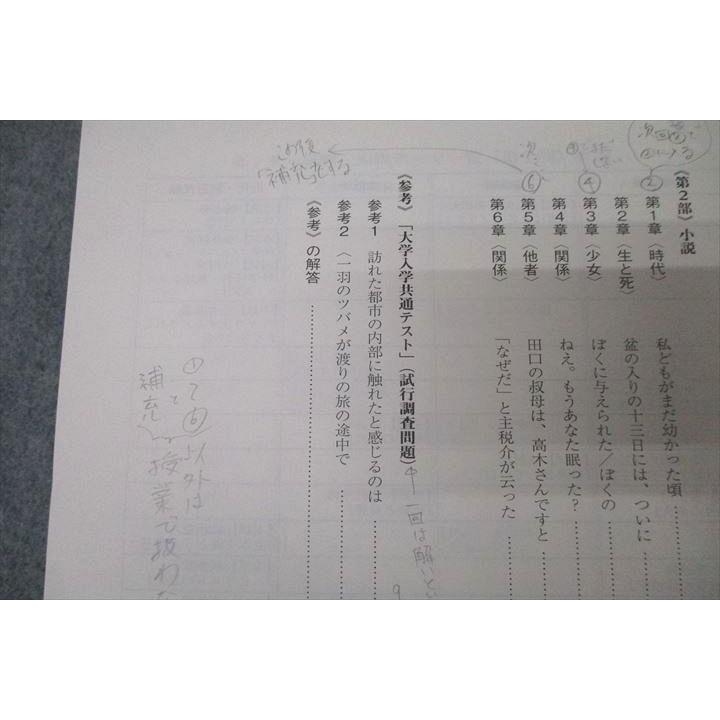 《第2部》小説
第1章〈時代〉 私どもがまだ幼かった頃
第2章〈生と死〉 盆の入りの十三日には、ついに
第3章〈少女〉 ぼくに与えられた/ぼくの
第4章〈関係〉 ねえ。もうあなた眠った?
第5章〈他者〉 田口の叔母は、高木さんですと
第6章〈関係〉 「なぜだ」と主税介が云った
《参考》「大学入学共通テスト」(試行調査問題)
参考1 訪れた都市の内部に触れたと感じるのは
参考2 〈一羽のツバメが渡りの旅の途中で
《参考》の解答
②
④
⑥
次
補充
一回は解いと
以外は
授業で扱わな
補充